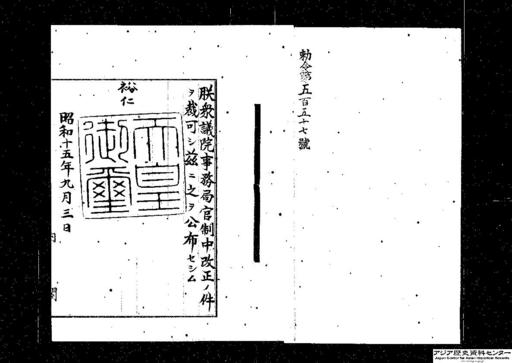 勅令第五百五十七號
朕衆議院事務局官制中改正ノ件
ヲ裁可シ茲ニ之ヲ公布セシム
裕仁
天皇
御璽
昭和十五年九月三日
内閣
アジア歴史資料センター
Japan Center for Asian Historical Records